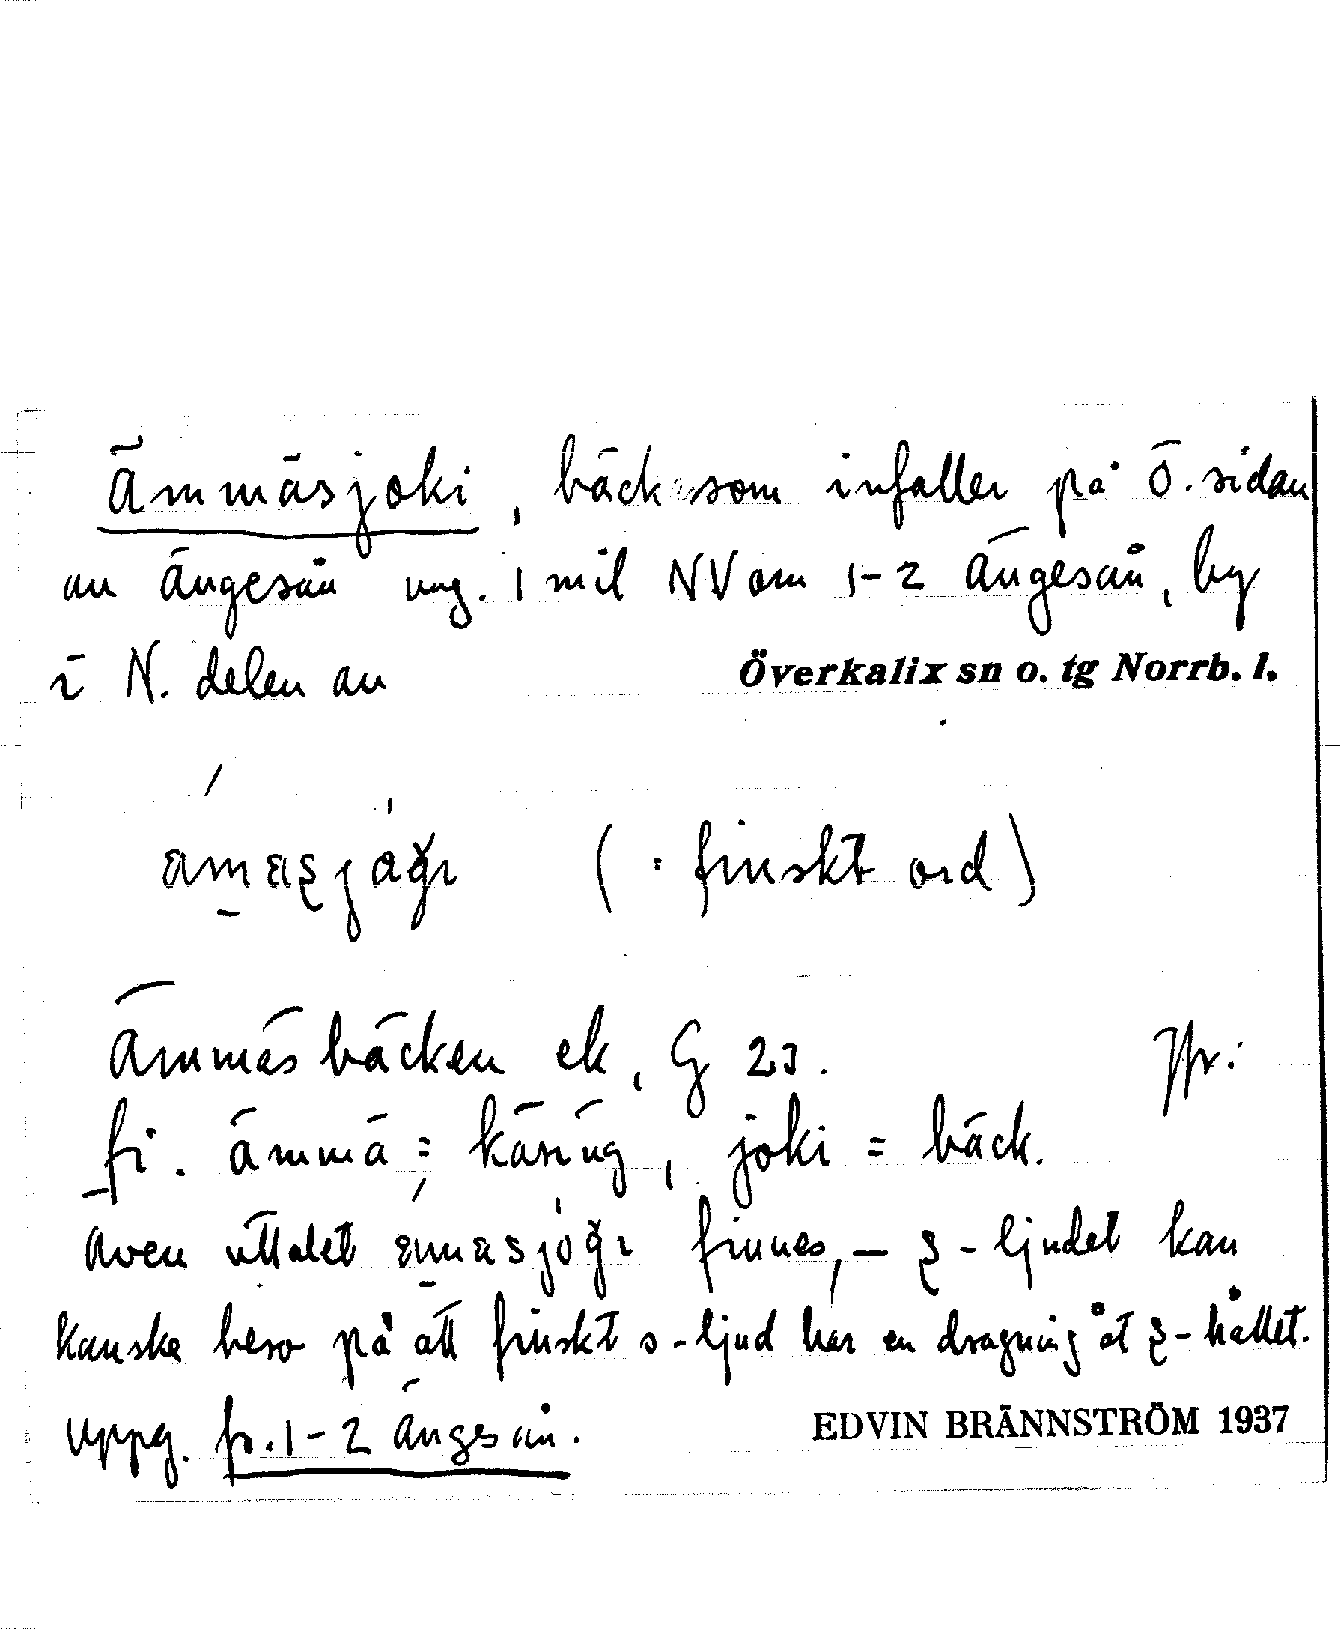 Ämmäsjoki, bäck som infaller på Ö. sidan
av Ängesån ung. 1 mil NV om 1-2 Ängesån, by
i N. delen av Överkalix sn o. tg Norrb. l.
(: finskt ord)
Ämmäsbäcken ek, G 23. Jfr:
fi. ämmä = käring, joki = bäck.
även uttalet finnes, – ʂ-ljudet kan
kanske bero på att finskt s-ljud har en dragning åt ʂ-hållet.
Uppg. fr. 1-2 Ängesån. EDVIN BRÄNNSTRÖM 1937